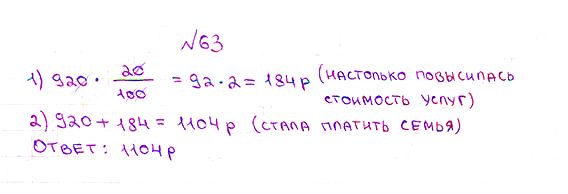 №63
1) 920 · 20/100 = 92 · 2 = 184 р (настолько повысилась
стоимость услуг)
2) 920 + 184 = 1104 р (стала платить семья)
Ответ: 1104 р